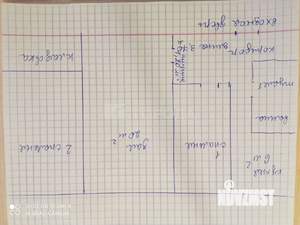 входная дверь
коридор
длина 3
кладовка
туалет
ванна
2 спальня
зал
20 м²
1
спальня
кухня
6 м²